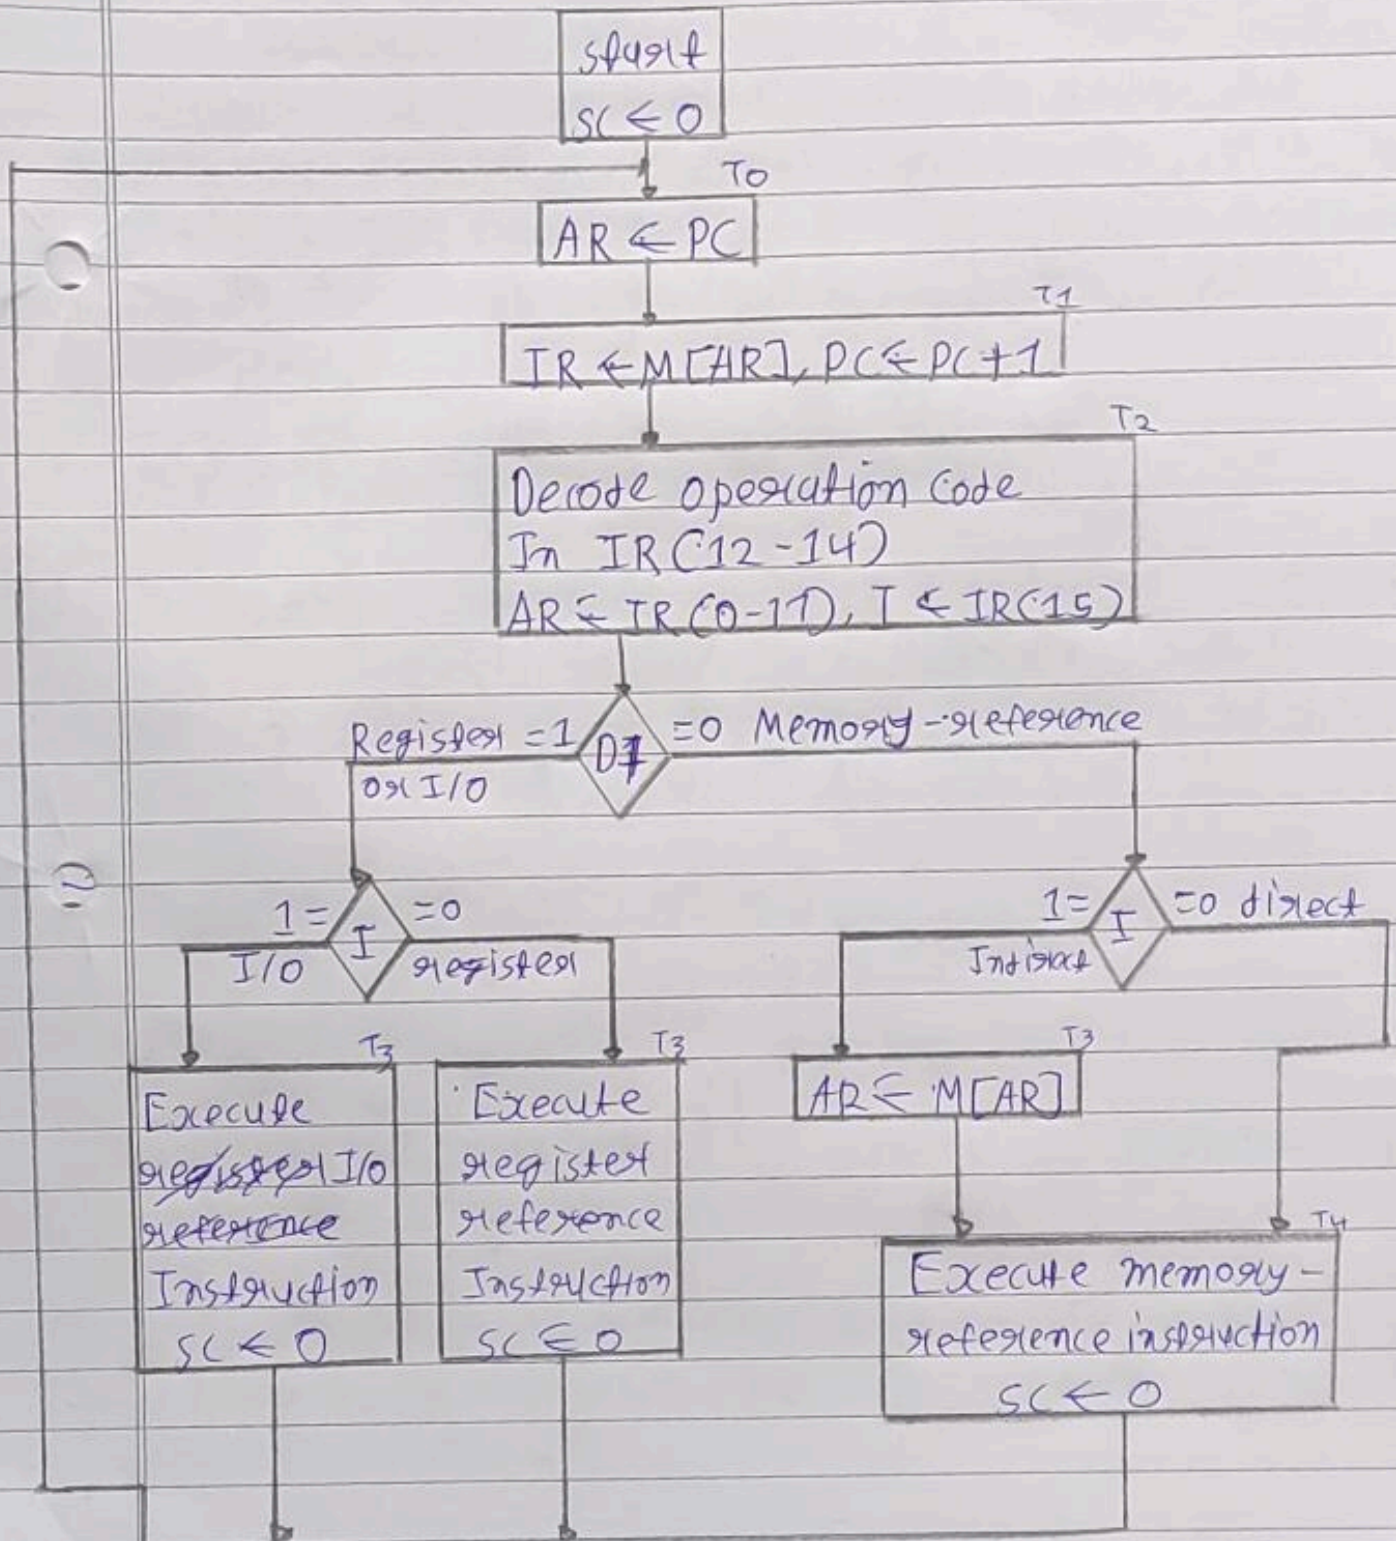 Start
SC ← 0
T0
AR ← PC
T1
IR ← M[AR], PC ← PC + 1
T2
Decode operation Code
In IR(12-14)
AR ← IR(0-11), I ← IR(15)
Register = 1
or I/O
D7
=0 Memory-reference
1=
I/O
I
=0
register
1=
Indirect
I
=0 direct
T3
Execute
register I/O
reference
Instruction
SC ← 0
T3
Execute
register
reference
Instruction
SC ← 0
T3
AR ← M[AR]
T4
Execute memory-
reference instruction
SC ← 0